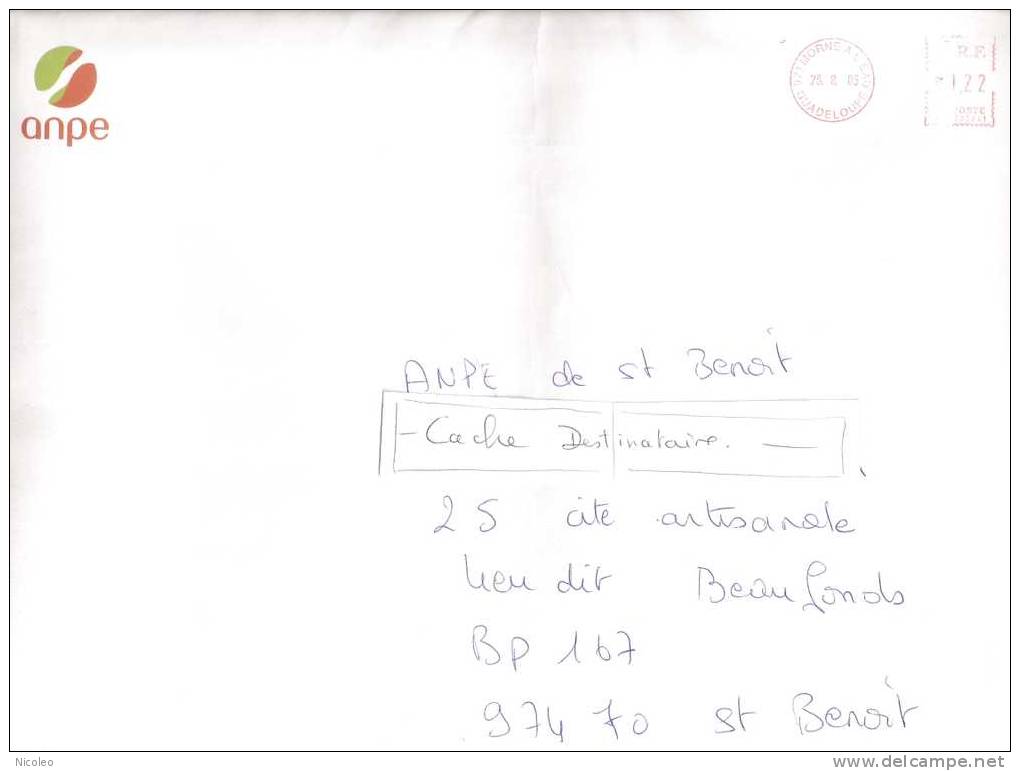 anpe
971 MORNE A L'EAU
GUADELOUPE
R.F.
1,22
POSTE
ANPE de st Benoit
- Cache Destinataire. —
25 cite artisanale
lieu dit Beaufonds
BP 167
974 70 st Benoit
Nicoleo
www.delcampe.net